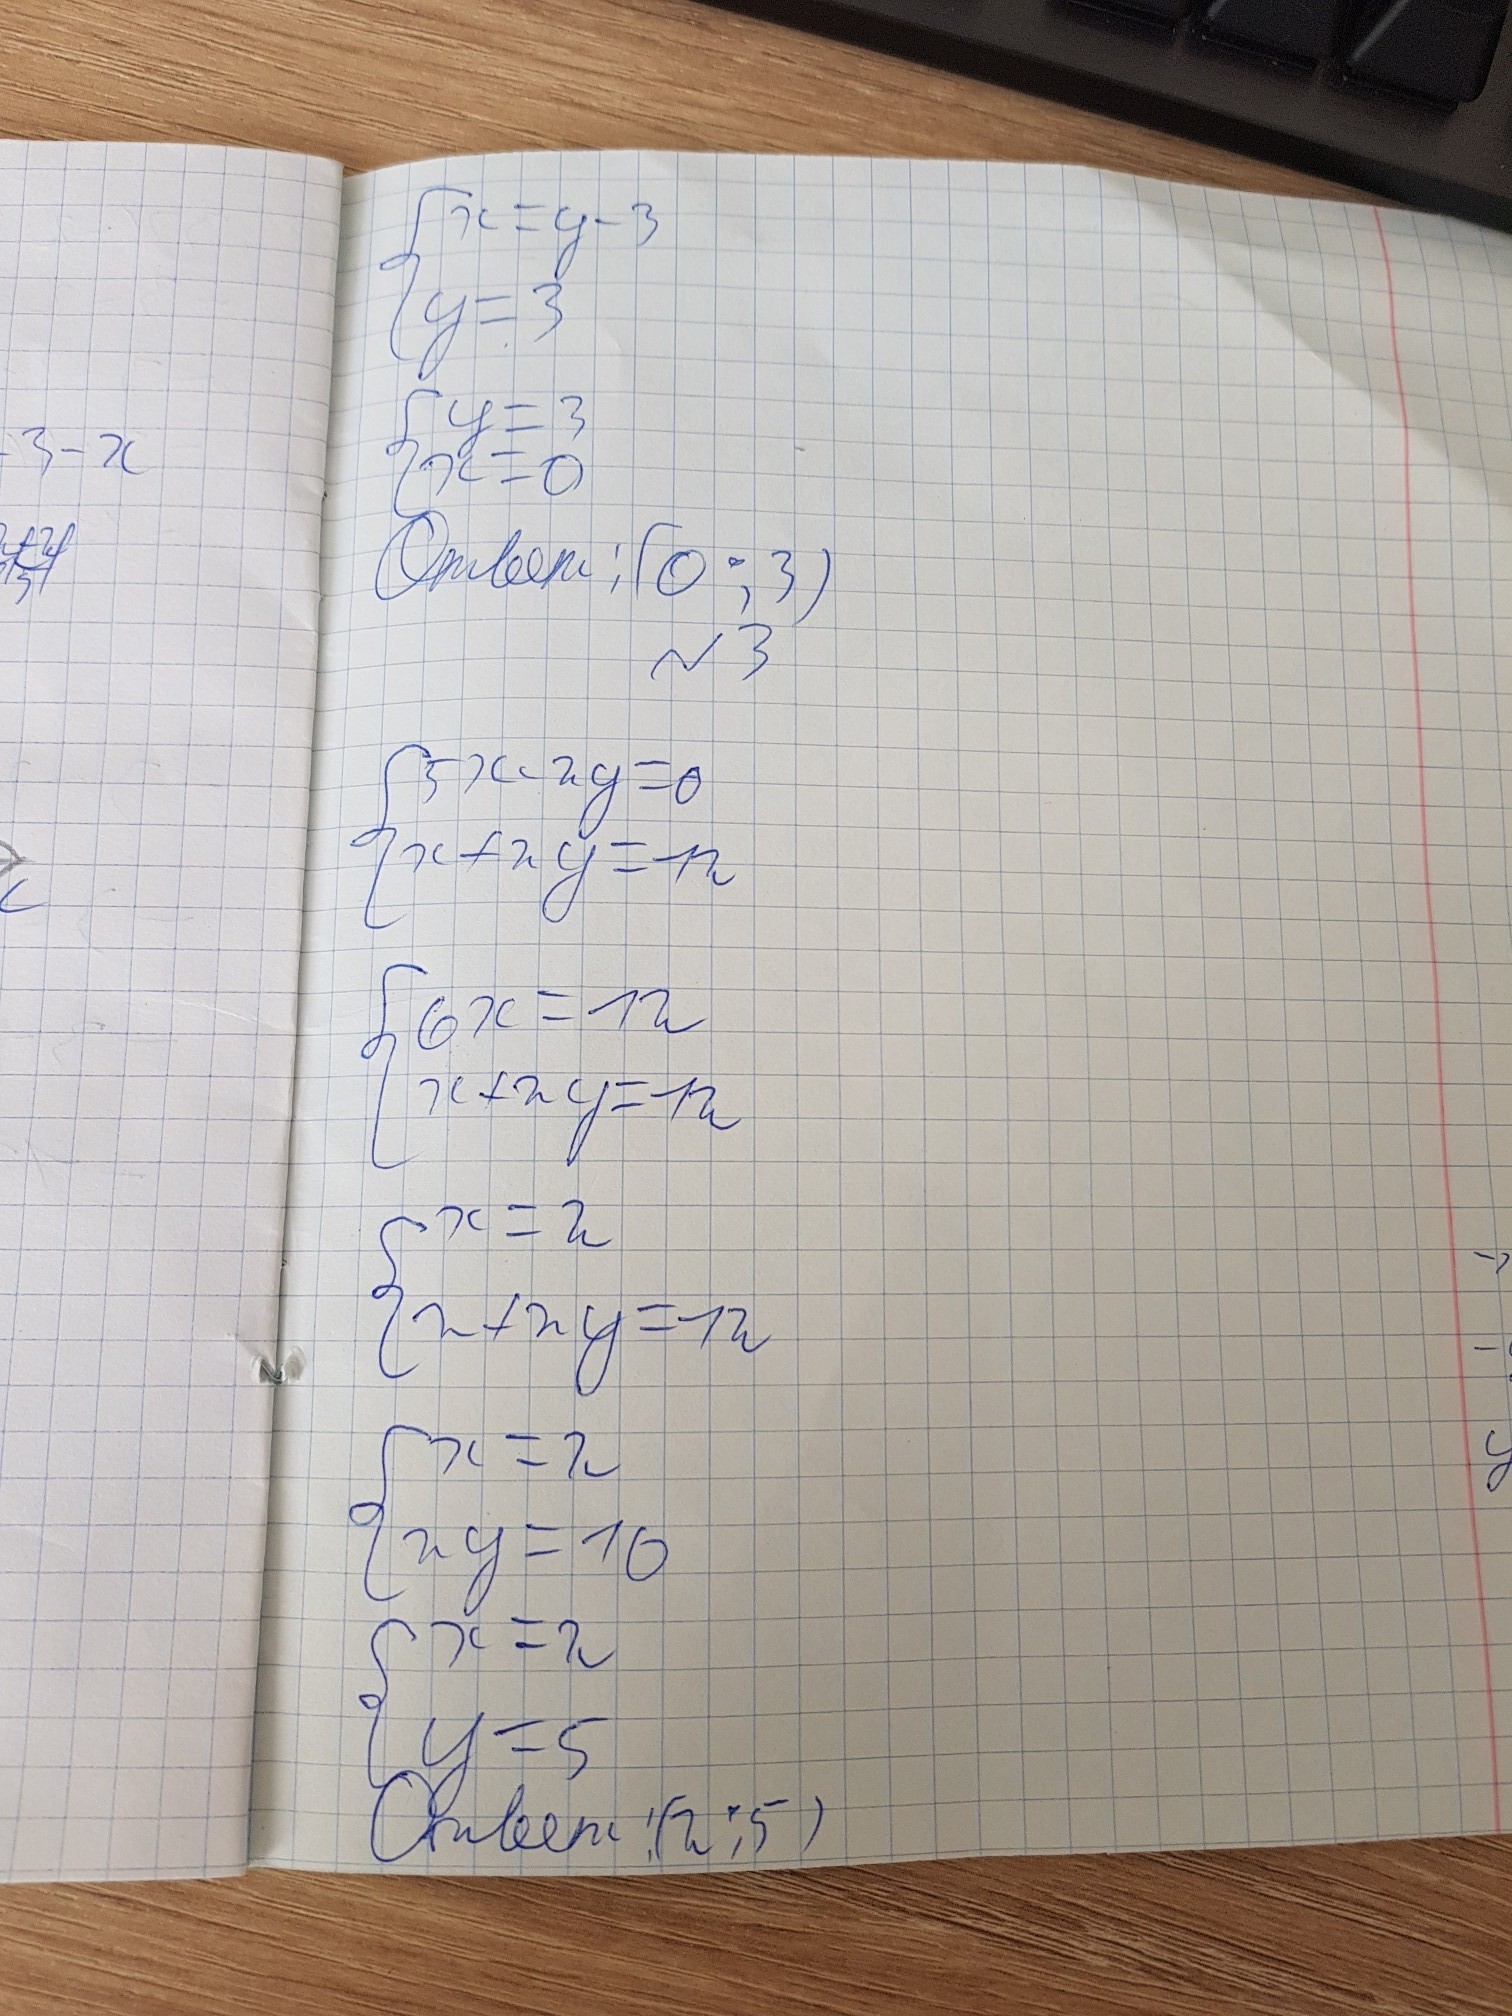 -3-x
{x=y-3
y=3
{y=3
x=0
Ответ: (0;3)
№3
{5x-2y=0
x+2y=12
{6x=12
x+2y=12
{x=2
2+2y=12
{x=2
2y=10
{x=2
y=5
Ответ: (2;5)
y